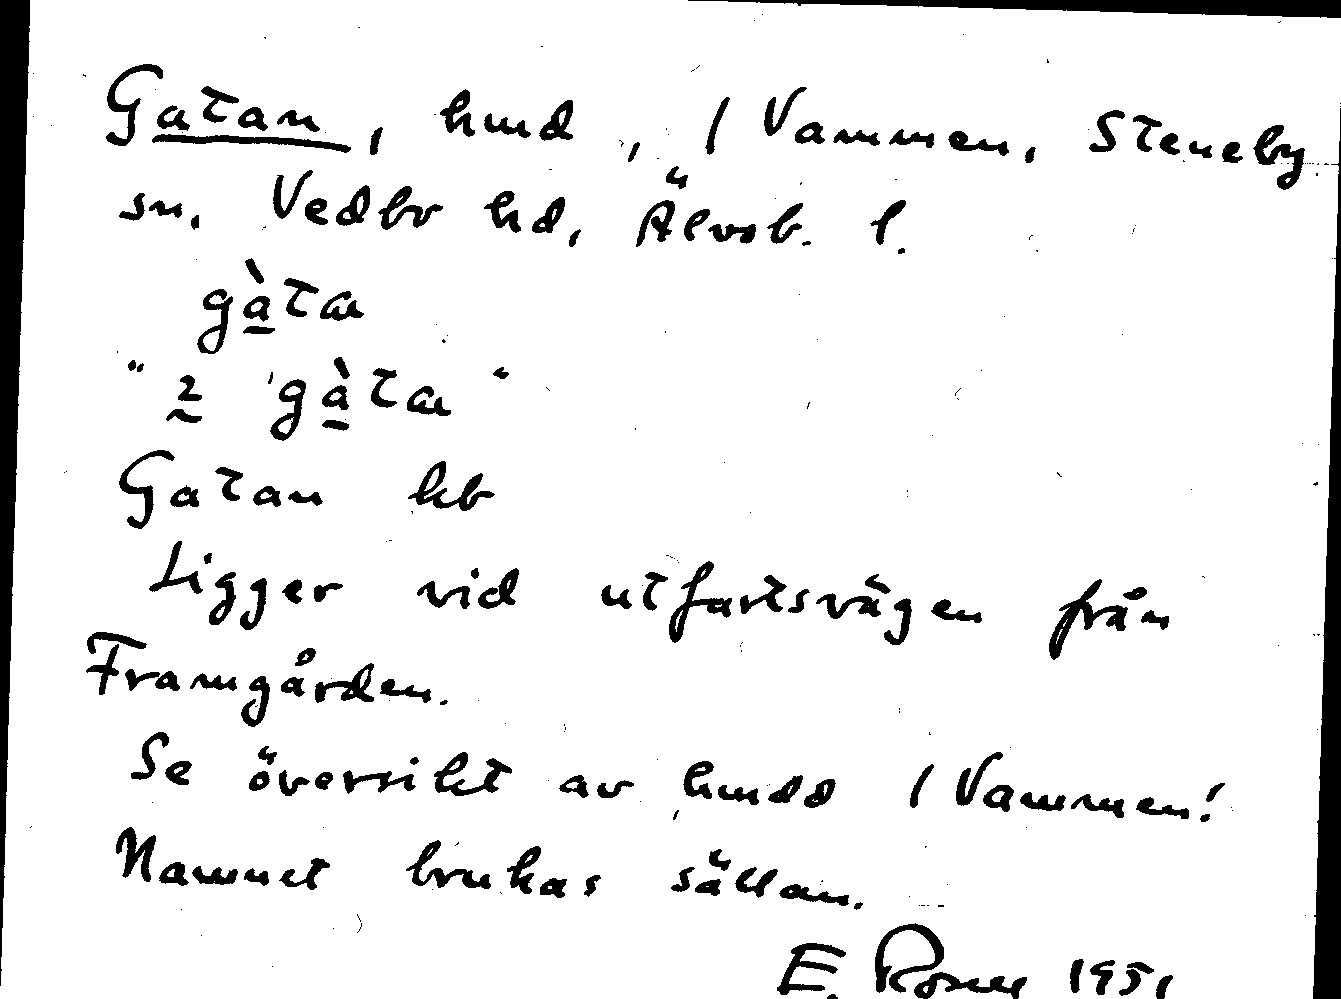 Gatan, hmd, / Vammen, Steneby
sn. Vedbo hd, Älvsb. l.
gàta
" 2 gàta "
Gatan kb
Ligger vid utfartsvägen från
Framgården.
Se översikt av hmdd / Vammen!
Namnet brukas sällan.
E. 1951